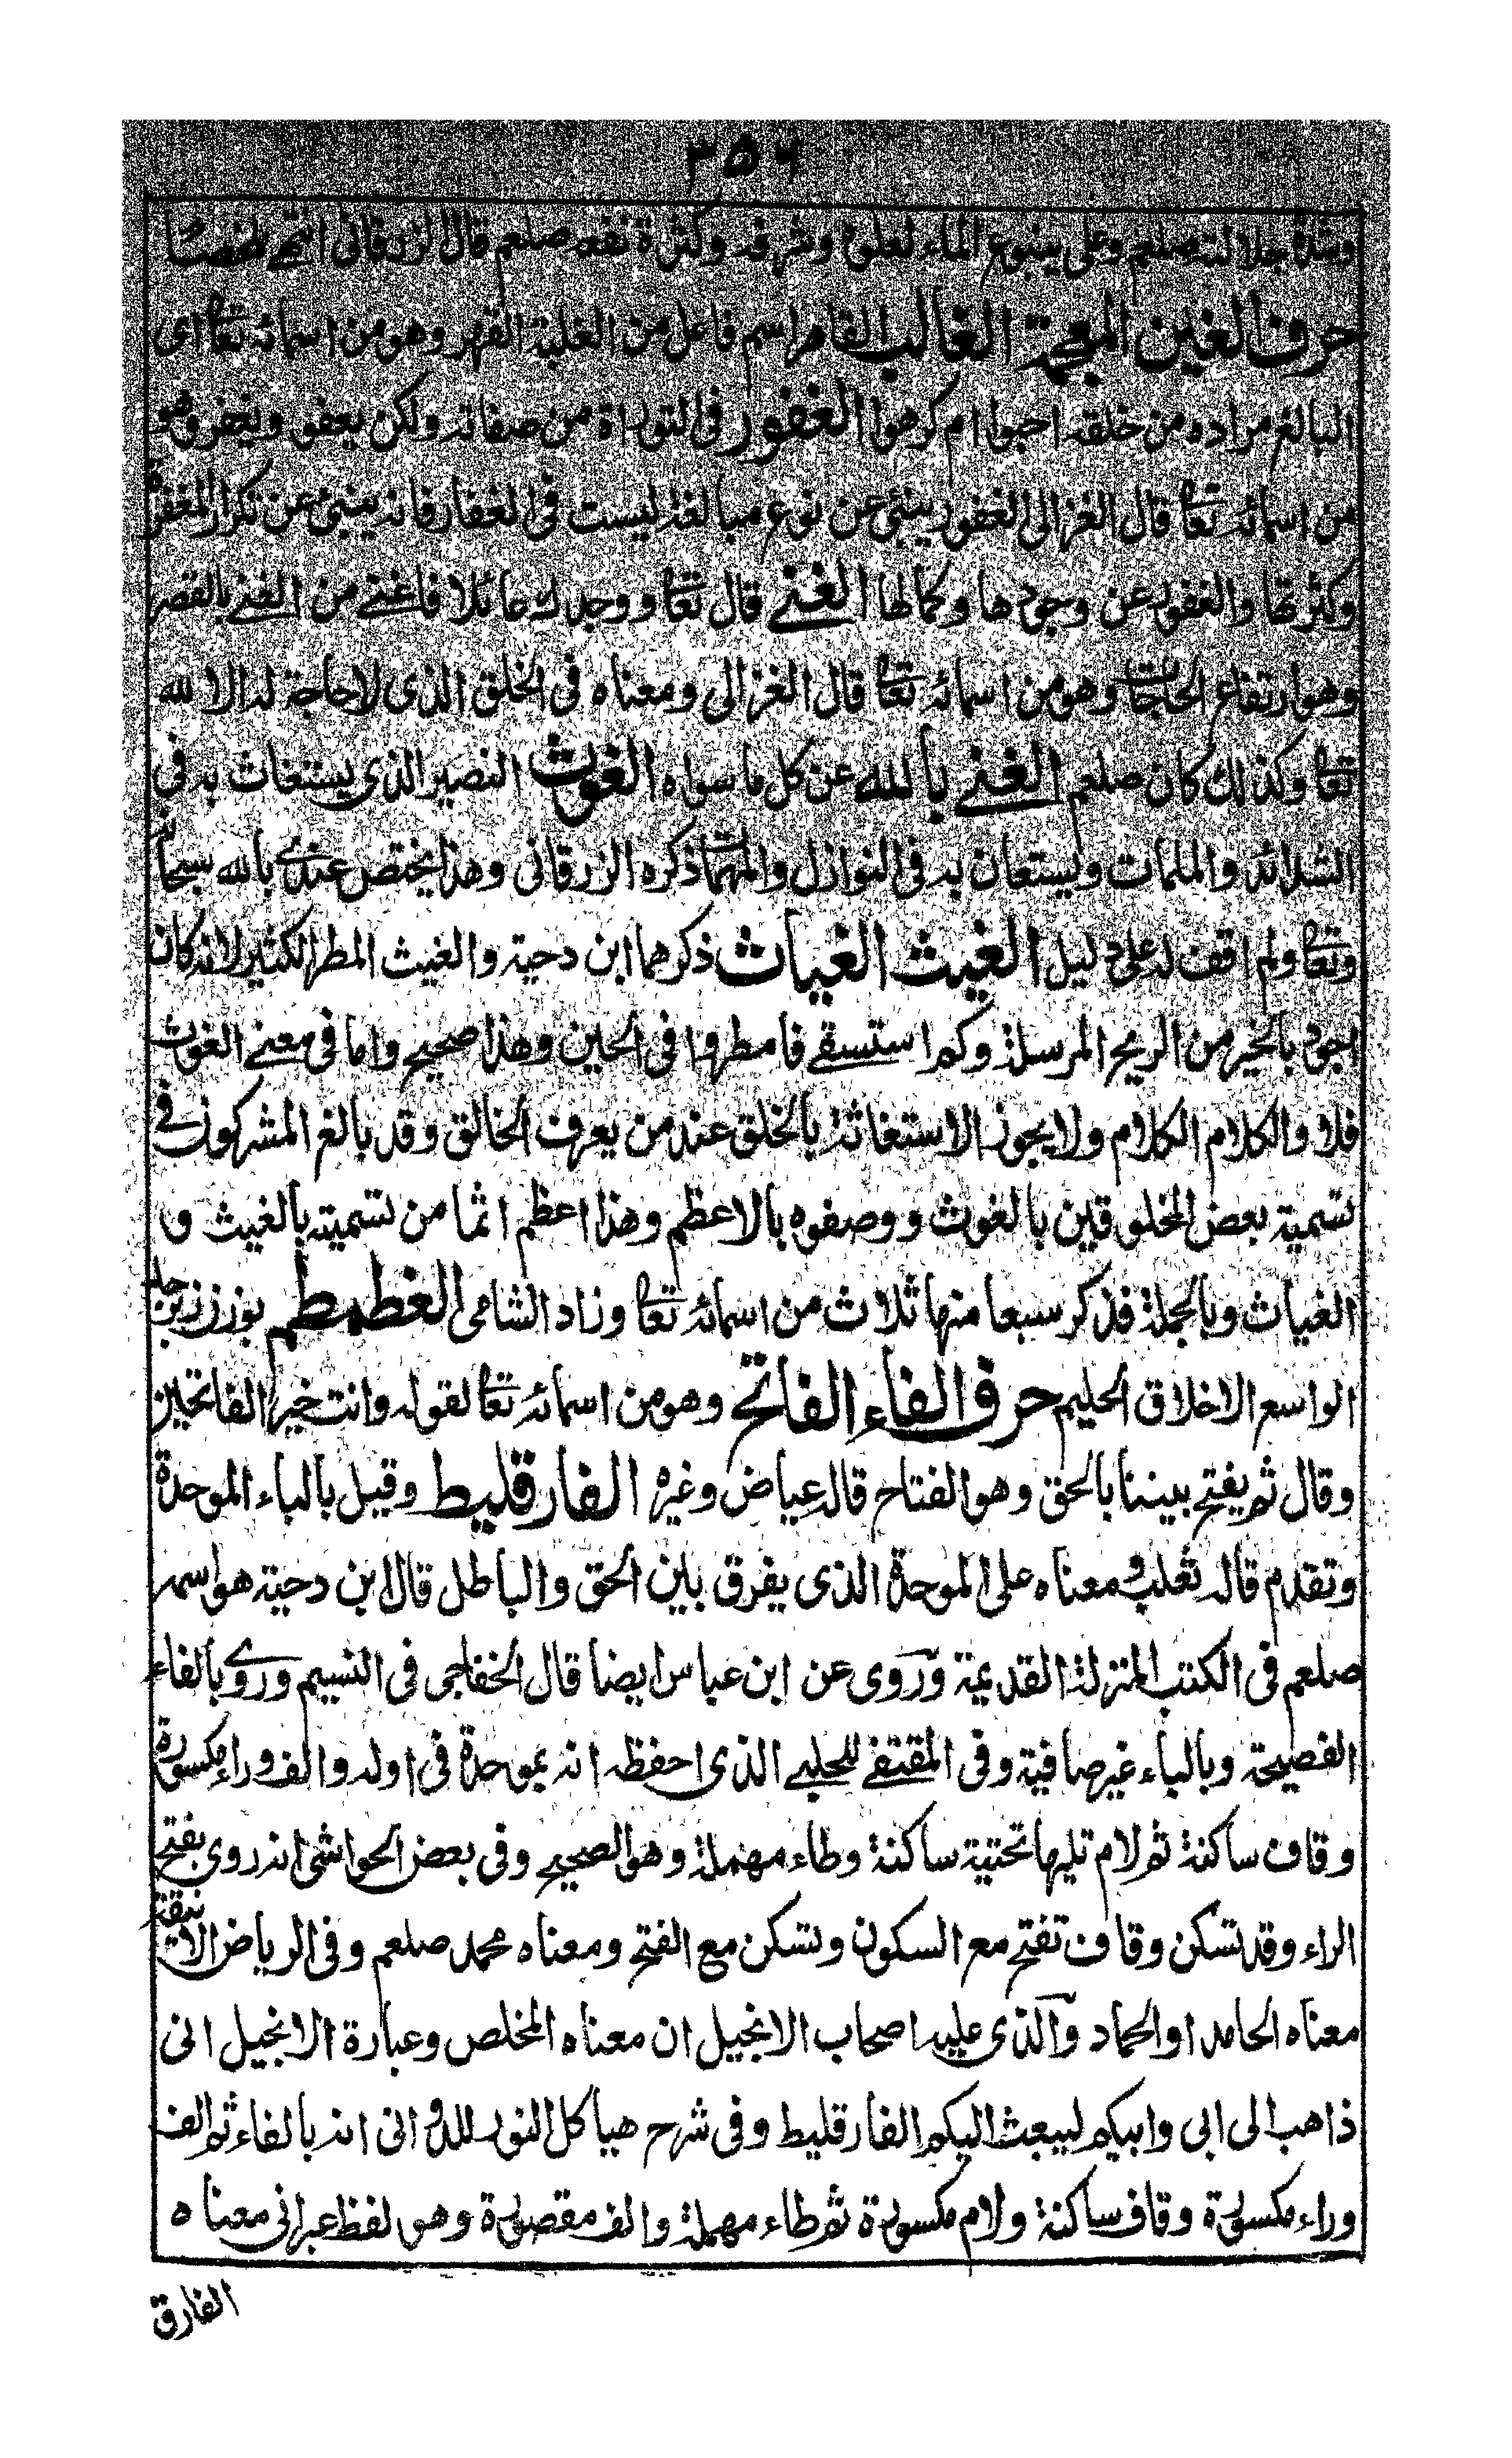 ٣٥٦
وشدة جلالته صلعم وعلى ينبوع الماء لعلوه وشرفه وكثرة نفعه صلعم قال الزرقانى انتهى ملخصا
حرف الغين المعجمة الغالب القاهر اسم فاعل من الغلبة القهر وهو من اسمائه تعا اى
البالغ مراده من خلقه احبوا ام كرهوا الغفور فى التوراة من صفاته ولكن يعفو ويغفر وهو
من اسمائه تعا قال الغزالى الغفور ينبئ عن نوع مبالغة ليست فى الغفار فانه ينبئ عن تكرار المغفرة
وكثرتها والغفور عن وجودها وكمالها الغنے قال تعا ووجدك عائلا فاغنے من الغنے بالقصر
وهو ارتفاع الحاجات وهو من اسمائه تعا قال الغزالى ومعناه فى الخلق الذى لا حاجة له الا لله
تعا وكذلك كان صلعم الغنے بالله عن كل ما سواه الغوث النصير الذى يستغاث به فى
الشدائد والملمات ويستعان به فى النوازل والمهمات ذكره الزرقانى وهذا يختص عندى بالله سبحانه
وتعا ولم اقف له على دليل الغيث الغياث ذكرهما ابن دحية والغيث المطر الكثير لانه كان
اجود بالخير من الريح المرسلة وكم استسقے فامطروا فى الحين وهذا صحيح واما فى معنے الغوث
فلا والكلام الكلام ولا يجوز الاستغاثة بالخلق عند من يعرف الخالق وقد بالغ المشركون فے
تسمية بعض المخلوقين بالغوث ووصفوه بالاعظم وهذا اعظم اثما من تسميته بالغيث و
الغياث وبالجملة فذكر سبعا منها ثلاث من اسمائه تعا وزاد الشامى الغطمطم بوزن زبرجد
الواسع الاخلاق الحليم حرف الفاء الفاتح وهو من اسمائه تعا لقوله وانت خير الفاتحين
وقال ثم يفتح بيننا بالحق وهو الفتاح قاله عياض وغيره الفارقليط وقيل بالباء الموحدة
وتقدم قاله ثعلب ومعناه على الموحدة الذى يفرق بين الحق والباطل قال ابن دحية هو اسمه
صلعم فى الكتب المنزلة القديمة وروى عن ابن عباس ايضا قال الخفاجى فى النسيم وروے بالفاء
الفصيحة وبالباء غير صافية وفى المقتفے للحلبے الذى احفظه انه بموحدة فى اوله والف وراء مكسورة
وقاف ساكنة ثم لام تليها تحتية ساكنة وطاء مهملة وهو الصحيح وفى بعض الحواشى انه روى بفتح
الراء وقد تسكن وقاف تفتح مع السكون وتسكن مع الفتح ومعناه محمد صلعم وفى الرياض الانيقة
معناه الحامد او الحماد والذى عليه اصحاب الانجيل ان معناه المخلص وعبارة الانجيل انى
ذاهب الى ابى وابيكم ليبعث اليكم الفارقليط وفى شرح هياكل النور للدوانى انه بالفاء ثم الف
وراء مكسورة وقاف ساكنة ولام مكسورة ثم طاء مهملة والف مقصورة وهو لفظ عبرانى معناه
الفارق